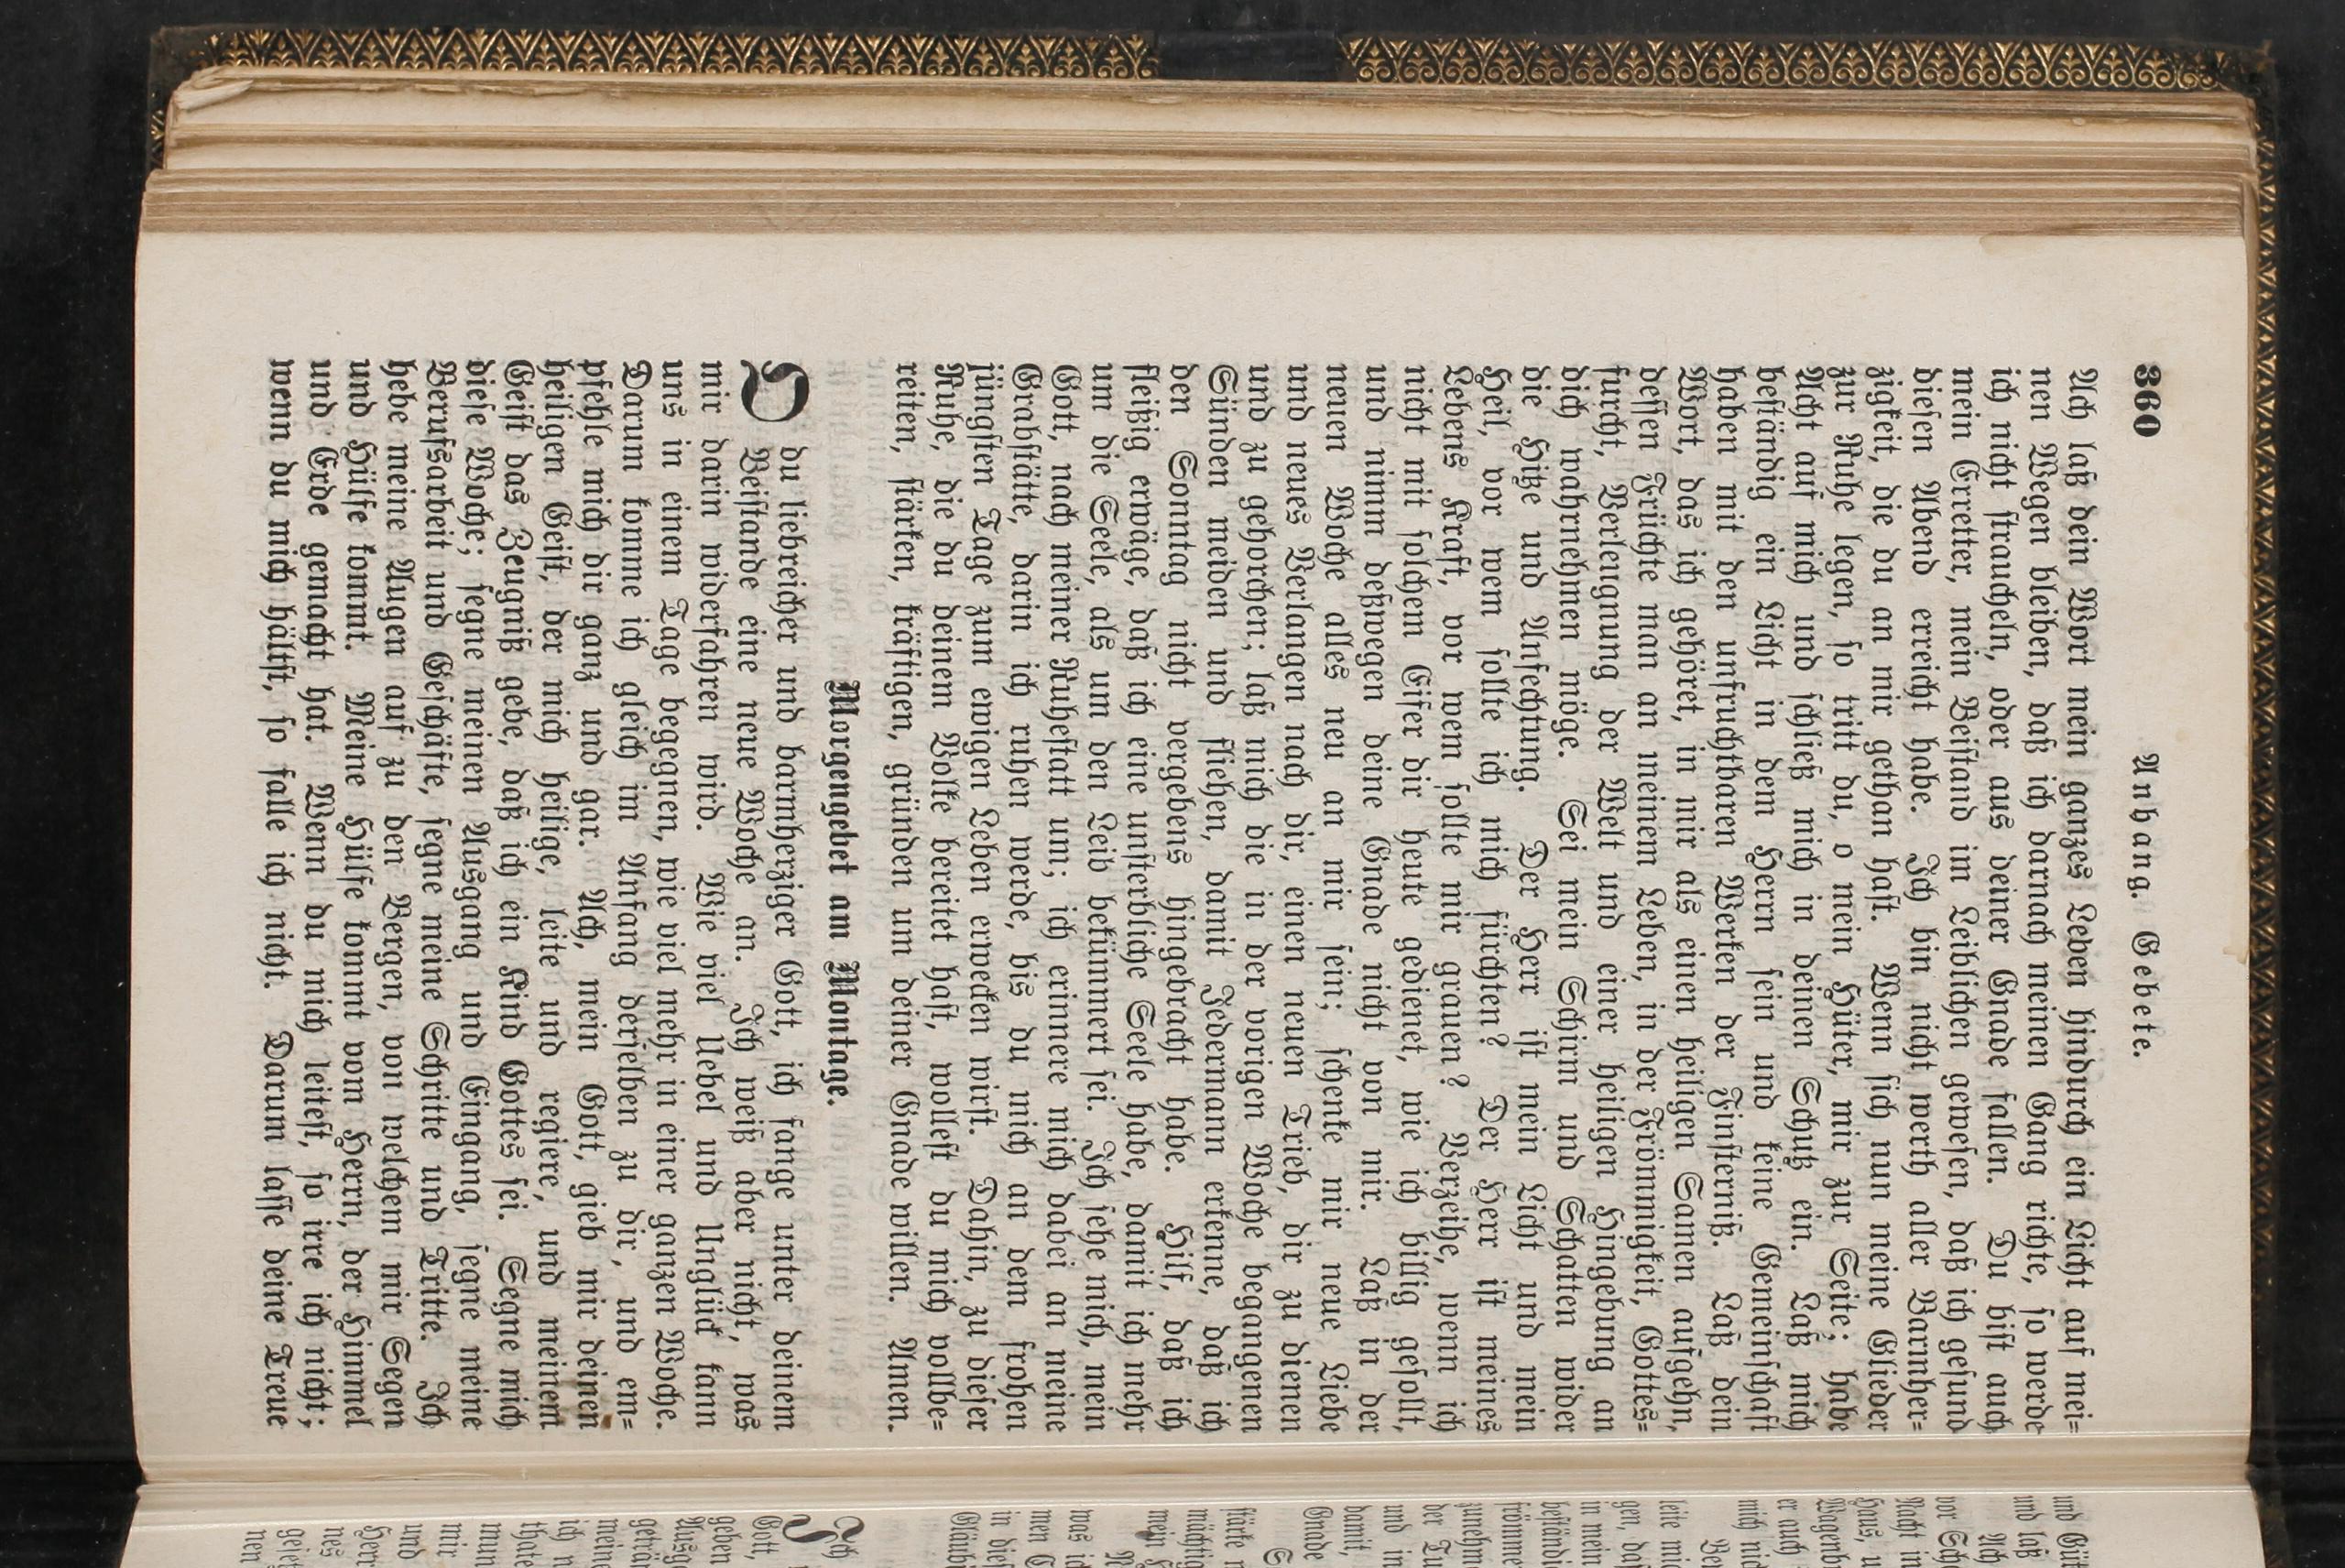 360 Anhang. Gebete.
Ach laß dein Wort mein ganzes Leben hindurch ein Licht auf mei=
nen Wegen bleiben, daß ich darnach meinen Gang richte, so werde
ich nicht straucheln, oder aus deiner Gnade fallen. Du bist auch
mein Erretter, mein Beistand im Leiblichen gewesen, daß ich gesund
diesen Abend erreicht habe. Ich bin nicht werth aller Barmher=
zigkeit, die du an mir gethan hast. Wenn sich nun meine Glieder
zur Ruhe legen, so tritt du, o mein Hüter, mir zur Seite; habe
Acht auf mich und schließ mich in deinen Schutz ein. Laß mich
beständig ein Licht in dem Herrn sein und keine Gemeinschaft
haben mit den unfruchtbaren Werken der Finsterniß. Laß dein
Wort, das ich gehöret, in mir als einen heiligen Samen aufgehn,
dessen Früchte man an meinem Leben, in der Frömmigkeit, Gottes=
furcht, Verleugnung der Welt und einer heiligen Hingebung an
dich wahrnehmen möge. Sei mein Schirm und Schatten wider
die Hitze und Anfechtung. Der Herr ist mein Licht und mein
Heil, vor wem sollte ich mich fürchten? Der Herr ist meines
Lebens Kraft, vor wem sollte mir grauen? Verzeihe, wenn ich
nicht mit solchem Eifer dir heute gedienet, wie ich billig gesollt,
und nimm deßwegen deine Gnade nicht von mir. Laß in der
neuen Woche alles neu an mir sein; schenke mir neue Liebe
und neues Verlangen nach dir, einen neuen Trieb, dir zu dienen
und zu gehorchen; laß mich die in der vorigen Woche begangenen
Sünden meiden und fliehen, damit Jedermann erkenne, daß ich
den Sonntag nicht vergebens hingebracht habe. Hilf, daß ich
fleißig erwäge, daß ich eine unsterbliche Seele habe, damit ich mehr
um die Seele, als um den Leib bekümmert sei. Ich sehe mich, mein
Gott, nach meiner Ruhestatt um; ich erinnere mich dabei an meine
Grabstätte, darin ich ruhen werde, bis du mich an dem frohen
jüngsten Tage zum ewigen Leben erwecken wirst. Dahin, zu dieser
Ruhe, die du deinem Volke bereitet hast, wollest du mich vollbe=
reiten, stärken, kräftigen, gründen um deiner Gnade willen. Amen.
Morgengebet am Montage.
O du liebreicher und barmherziger Gott, ich fange unter deinem
Beistande eine neue Woche an. Ich weiß aber nicht, was
mir darin widerfahren wird. Wie viel Uebel und Unglück kann
uns in einem Tage begegnen, wie viel mehr in einer ganzen Woche.
Darum komme ich gleich im Anfang derselben zu dir, und em=
pfehle mich dir ganz und gar. Ach, mein Gott, gieb mir deinen
heiligen Geist, der mich heilige, leite und regiere, und meinem
Geist das Zeugniß gebe, daß ich ein Kind Gottes sei. Segne mich
diese Woche; segne meinen Ausgang und Eingang, segne meine
Berufsarbeit und Geschäfte, segne meine Schritte und Tritte. Ich
hebe meine Augen auf zu den Bergen, von welchem mir Segen
und Hülfe kommt. Meine Hülfe kommt vom Herrn, der Himmel
und Erde gemacht hat. Wenn du mich leitest, so irre ich nicht;
wenn du mich hältst, so falle ich nicht. Darum lasse deine Treue